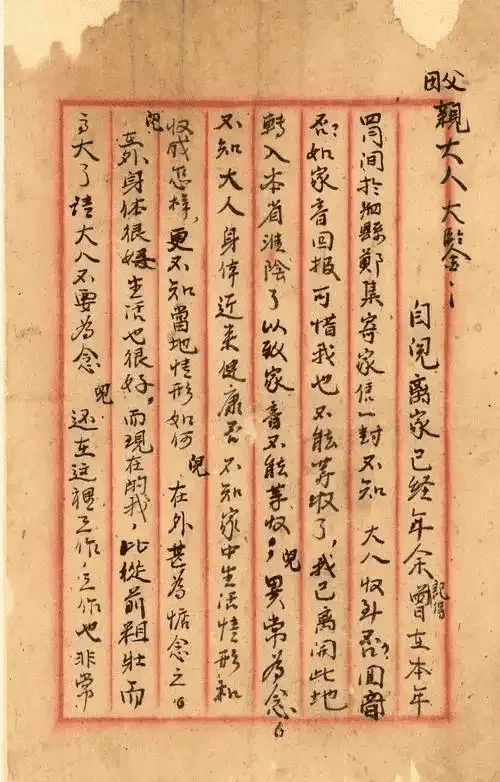 父母親大人大鑒：
自兒離家已经年余記得曾在本年
四月间於泗縣鄭集寄家信一封不知 大人收到否？回音
否？如家音回报可惜我也不能等收了，我已离開此地
轉入本省淮陰了以致家音不能等收，兒異常為念。
不知大人身体近来健康否 不知家中生活情形和
收成怎样，更不知當地情形如何 兒在外甚為惦念之。
兒在外身体很好 生活也很好，而現在的我，比從前粗壮而
高大了請大人不要為念 兒还在这裡工作，工作也非常